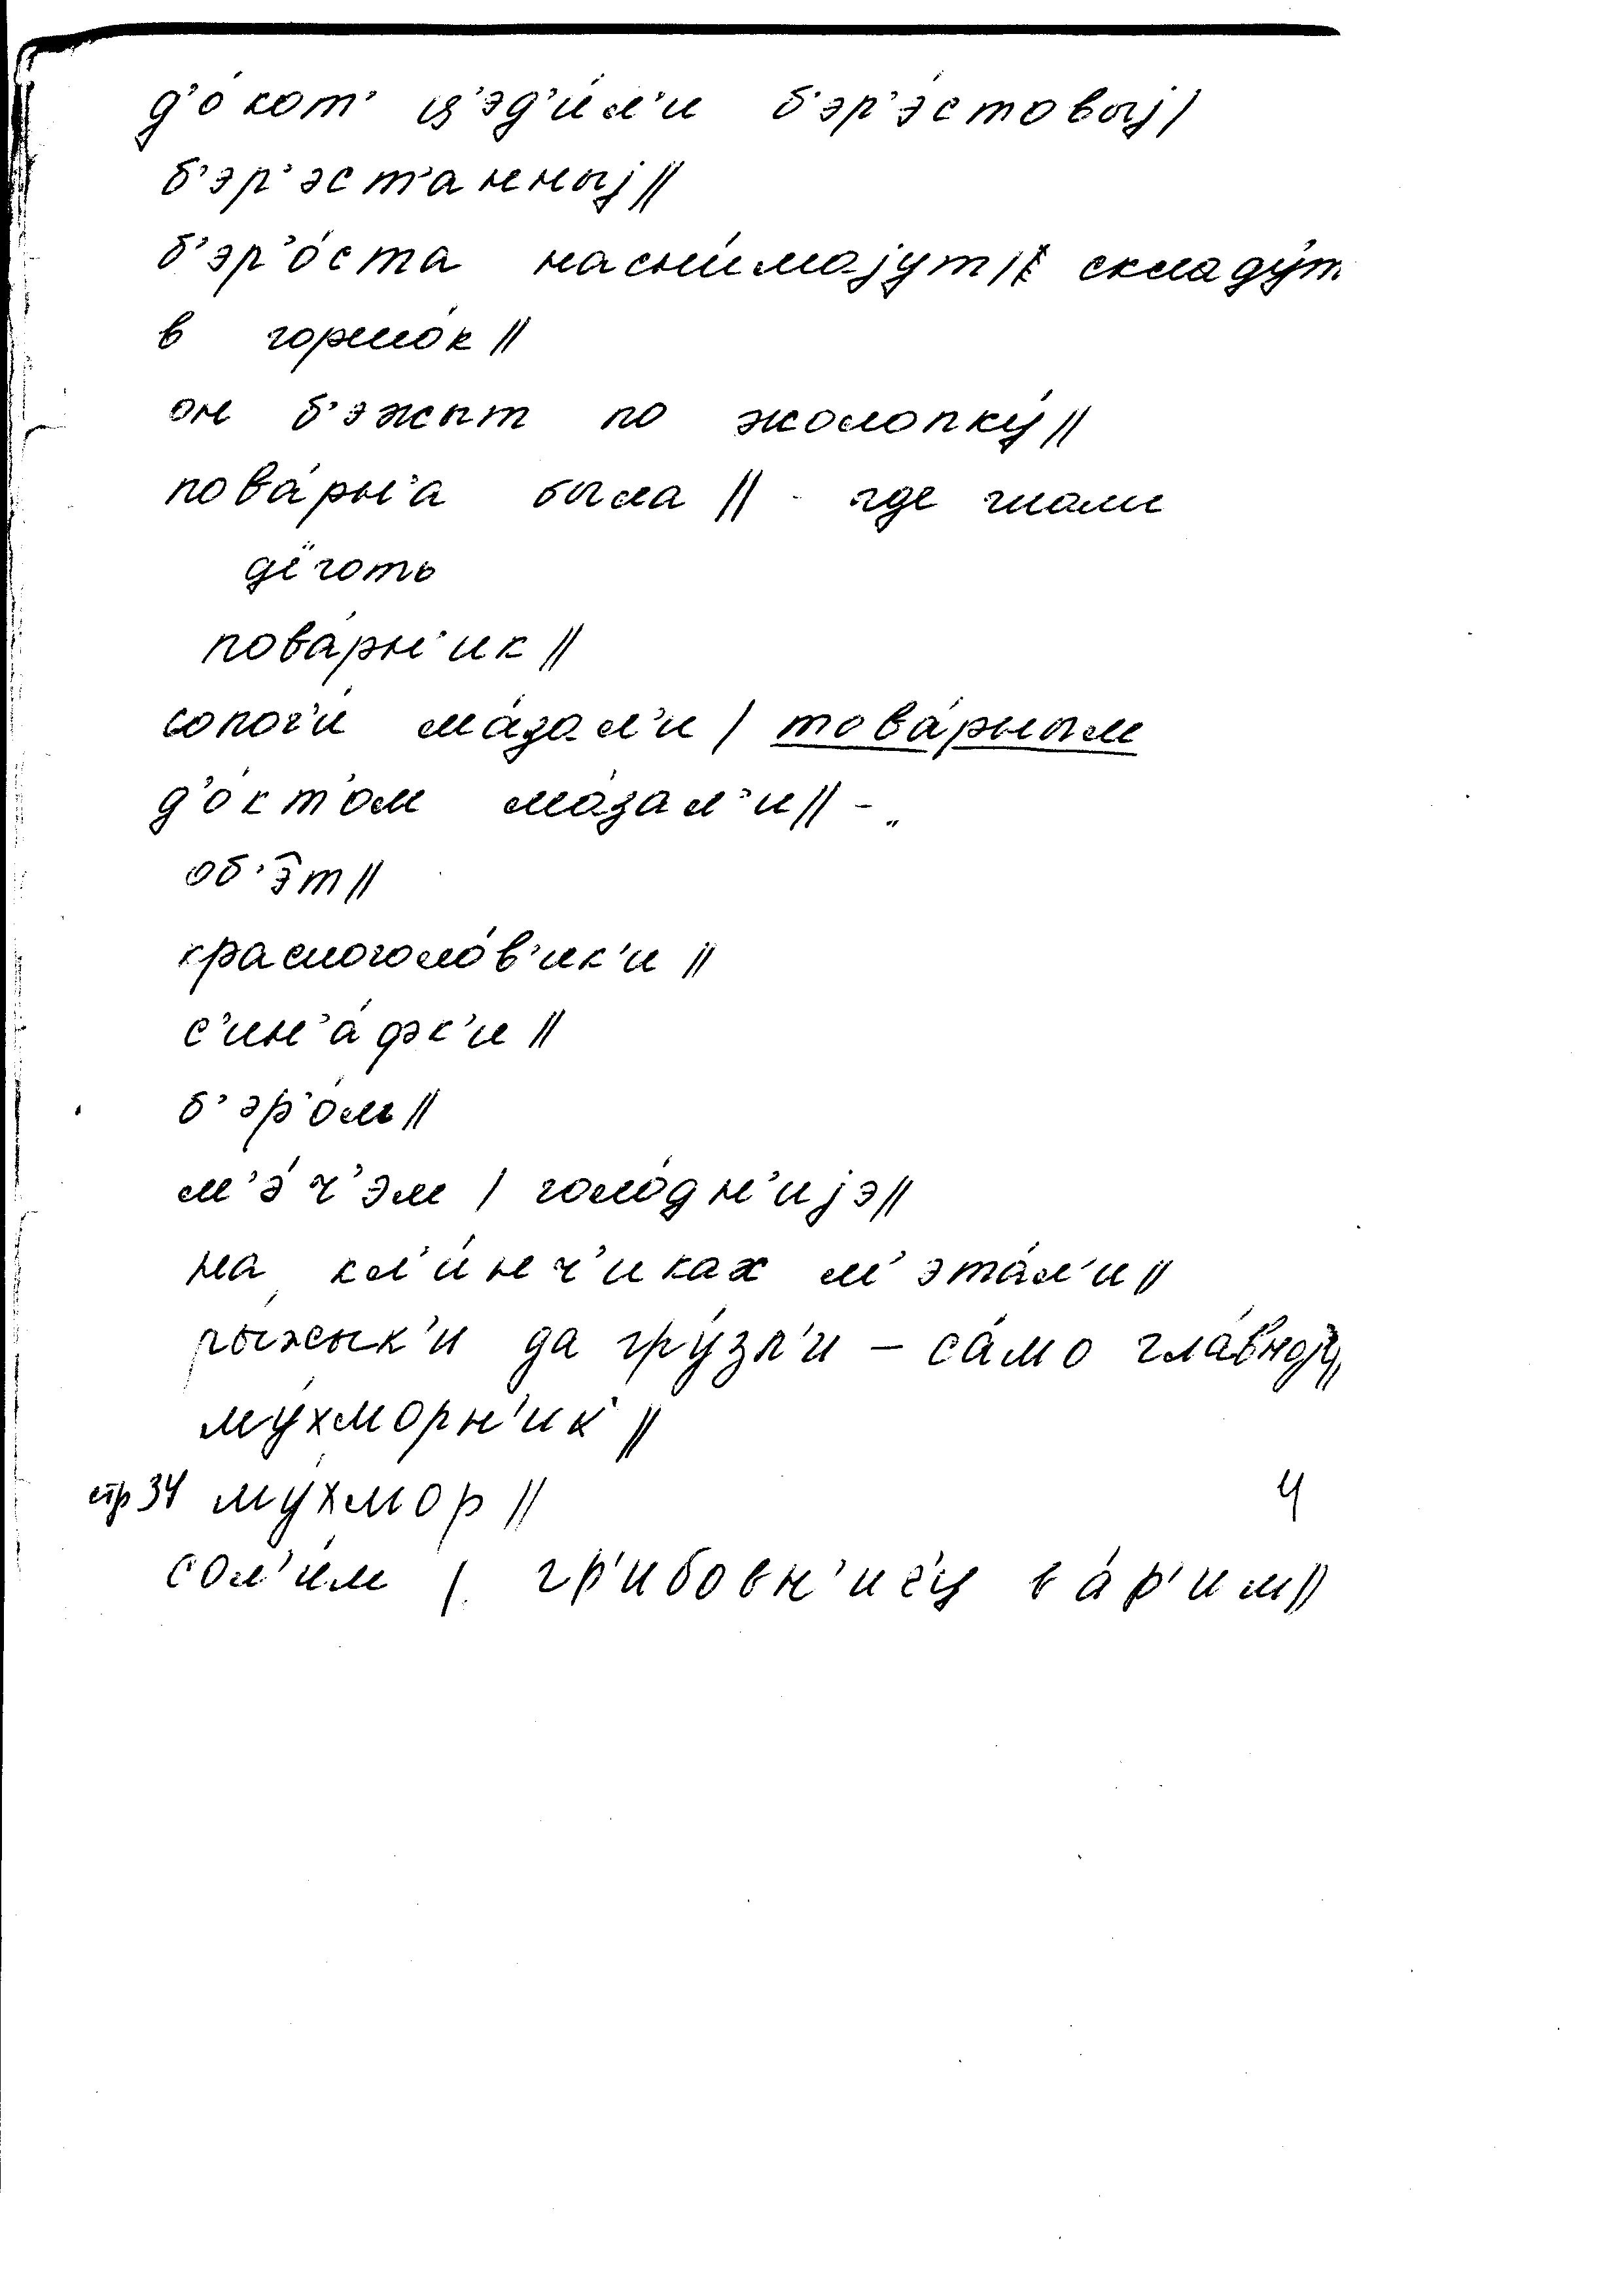 д'о́кот' ц'эд'и́л'и б'эр'э́стовыj/
б'эр'эст'анныj//
б'эр'о́ста насни́маjут/ складу́т
в горшо́к //
он б'эжыт по жолопку́//
пова́рн'а была // где гнали
дёготь
пова́рн'ик //
сопог'и́ ма́зал'и / това́рным
д'о́кт'ом ма́зал'и// -
об'э̂т//
красноголо́в'ик'и //
с'ин'а́фк'и //
б'эр'о́м//
м'э́ч'эм / голо́дн'иjэ//
на кл'и́нч'иках м'эта́л'и//
ры́жык'и да гру́зл'и – са́мо гла́вноj//
му́хморн'ик //
стр 34 му́хмор // 4
сол'и́м / гр'ибовн'иц'у ва́р'им//